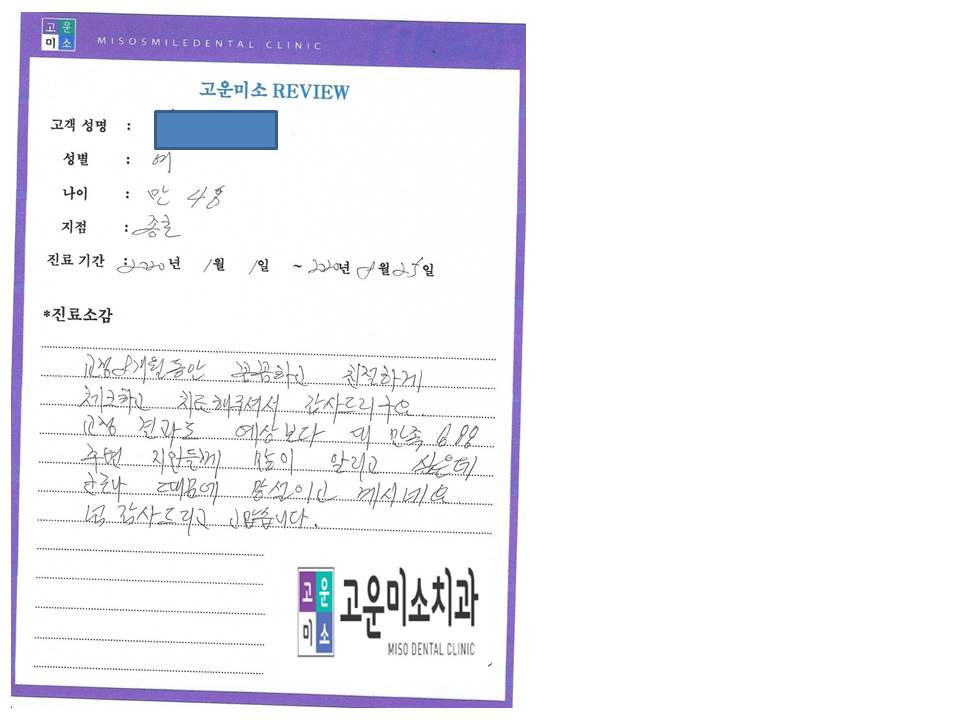 고운
미소
MISOSMILEDENTAL CLINIC
고운미소 REVIEW
고객 성명 :
성별 : 여
나이 : 만 48
지점 : 종로
진료 기간 : 2020년 1월 1일 ~ 2020년 8월 25일
*진료소감
교정 8개월동안 꼼꼼하고 친절하게
체크하고 치료해주셔서 감사드리구요.
교정 결과도 예상보다 더 만족
주변 지인들께 많이 알리고 싶은데
코로나 때문에 망설이고 계시네요
넘 감사드리고 고맙습니다.
고운
미소
고운미소치과
MISO DENTAL CLINIC